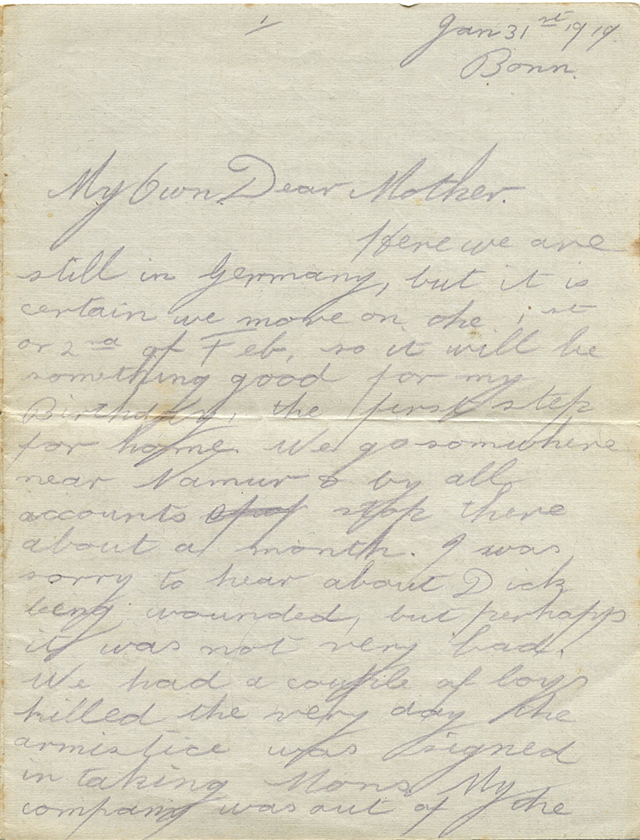 1/
Jan 31st 1919
Bonn.
My Own Dear Mother.
Here we are
still in Germany, but it is
certain we move on the 1st
or 2nd of Feb, so it will be
something good for my
Birthday, the first step
for home. We go somwhere
near Namur & by all
accounts stop there
about a month. I was
sorry to hear about Dick
being wounded, but perhapps
it was not very bad.
We had a couple of boys
killed the very day the
armistice was signed
in taking Mons. My
company was out of the